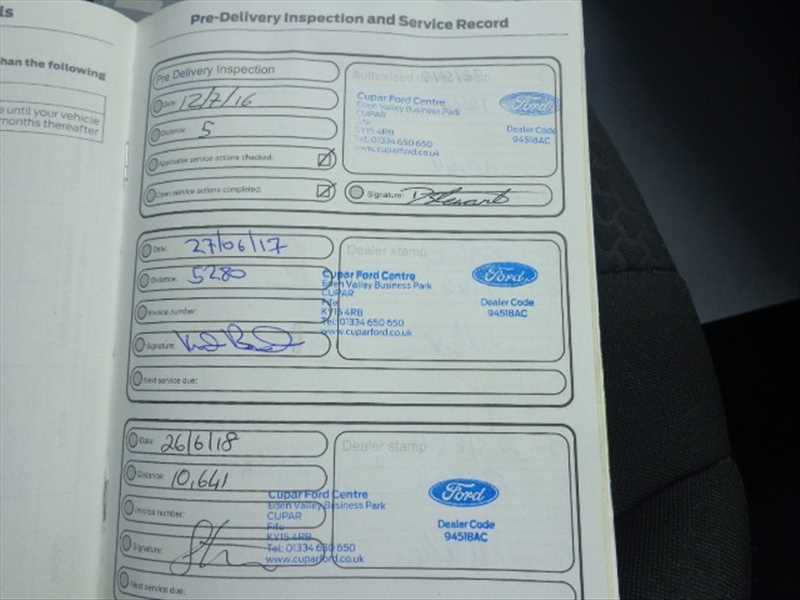 ls
han the following
until your vehicle
months thereafter
Pre-Delivery Inspection and Service Record
Pre Delivery Inspection
Date: 12/7/16
Distance: 5
Applicable service actions checked:
Open service actions completed:
Cupar Ford Centre
Eden Valley Business Park
CUPAR
Fife
KY15 4RB
Tel: 01334 650 650
www.cuparford.co.uk
Ford
Dealer Code
94518AC
Signature:
Date: 27/06/17
Distance: 5280
Invoice number:
Signature:
Next service due:
Dealer stamp
Cupar Ford Centre
Eden Valley Business Park
CUPAR
Fife
KY15 4RB
Tel: 01334 650 650
www.cuparford.co.uk
Ford
Dealer Code
94518AC
Date: 26/6/18
Distance: 10,641
Invoice number:
Signature:
Next service due:
Dealer stamp
Cupar Ford Centre
Eden Valley Business Park
CUPAR
Fife
KY15 4RB
Tel: 01334 650 650
www.cuparford.co.uk
Ford
Dealer Code
94518AC